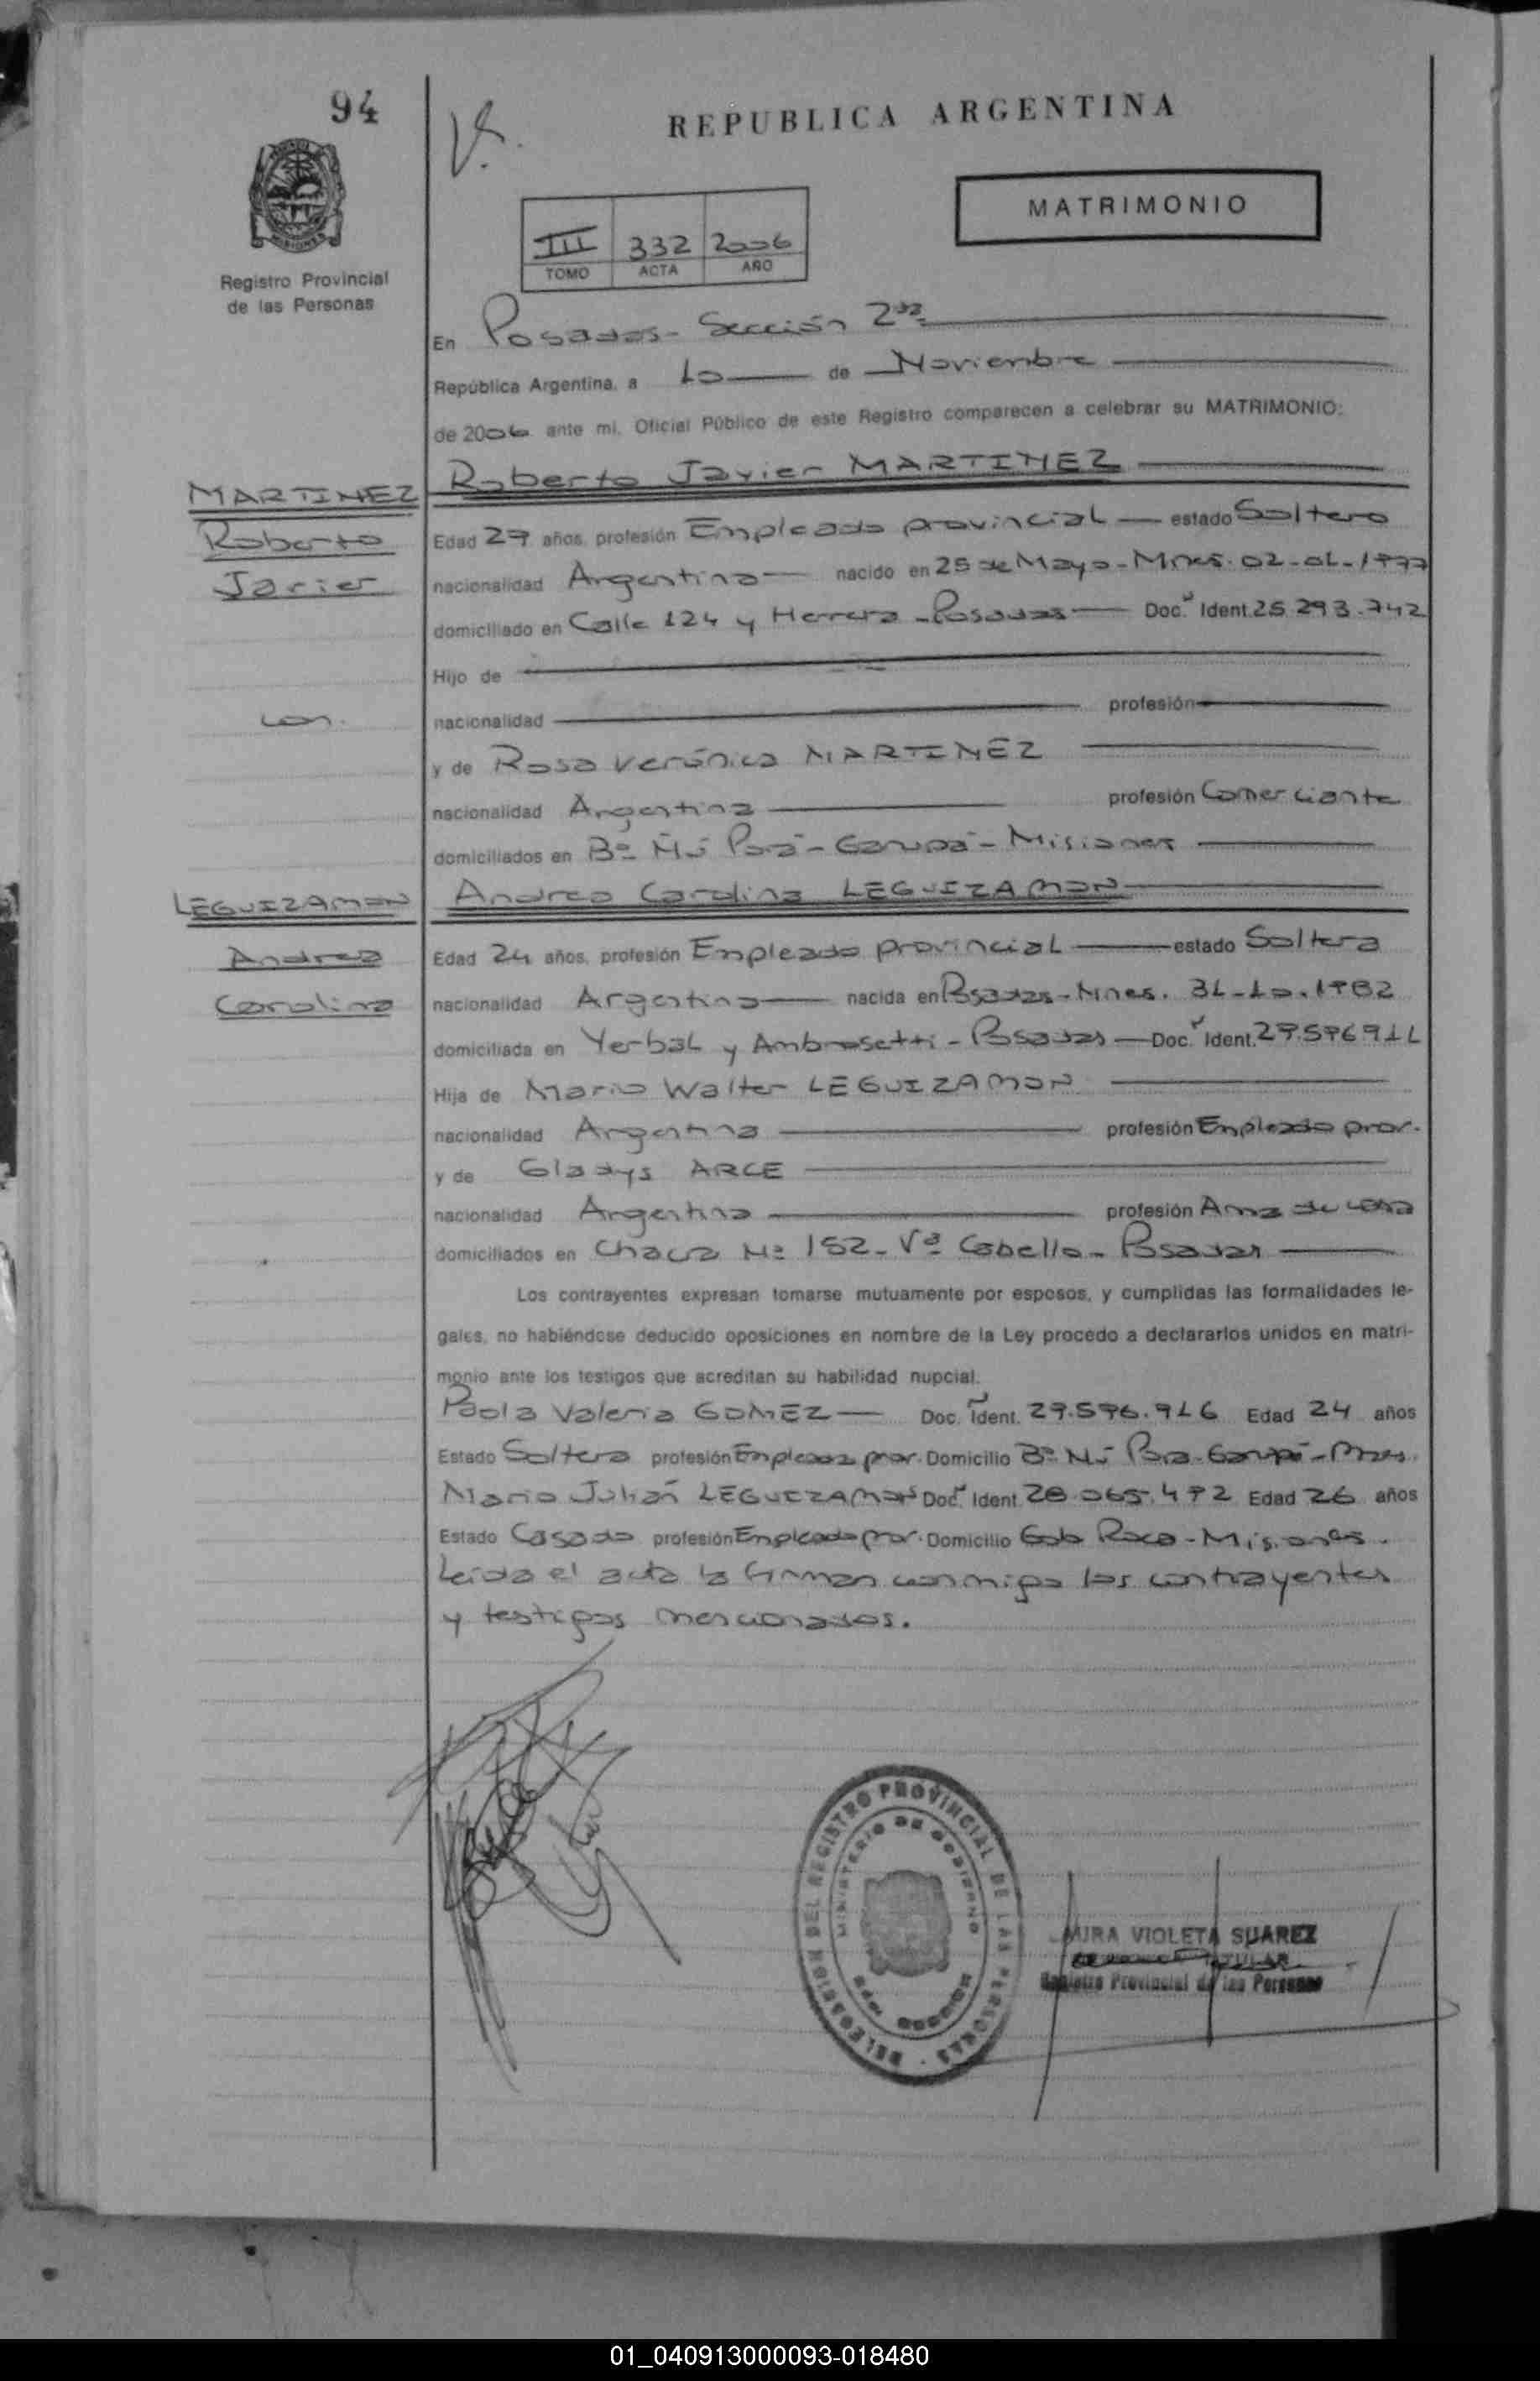 94
REPUBLICA ARGENTINA
MATRIMONIO
III 332 2006
TOMO ACTA AÑO
Registro Provincial
de las Personas
En Posadas - Sección 2da
República Argentina, a 10 de Noviembre
de 2006 ante mi, Oficial Público de este Registro comparecen a celebrar su MATRIMONIO:
Roberto Javier MARTINEZ
MARTINEZ
Roberto
Javier
Edad 29 años, profesión Empleado provincial estado Soltero
nacionalidad Argentina nacido en 25 de Mayo - Mnes. 02-01-1977
domiciliado en Calle 124 y Herrera - Posadas Doc. Ident. 25.293.742
Hijo de
con.
nacionalidad profesión
y de Rosa Verónica MARTINEZ
nacionalidad Argentina profesión Comerciante
domiciliados en Bº Ñú Porá - Garupá - Misiones
Andrea Carolina LEGUIZAMON
LEGUIZAMON
Andrea
Carolina
Edad 24 años, profesión Empleado provincial estado Soltera
nacionalidad Argentina nacida en Posadas - Mnes. 31-10-1982
domiciliada en Yerbal y Ambrosetti - Posadas Doc. Ident. 29.596.911
Hija de Mario Walter LEGUIZAMON
nacionalidad Argentina profesión Empleado prov.
y de Gladys ARCE
nacionalidad Argentina profesión Ama de casa
domiciliados en Chacra Nº 152 - Vª Cabello - Posadas
Los contrayentes expresan tomarse mutuamente por esposos, y cumplidas las formalidades le-
gales, no habiéndose deducido oposiciones en nombre de la Ley procedo a declararlos unidos en matri-
monio ante los testigos que acreditan su habilidad nupcial.
Paola Valeria GOMEZ Doc. Ident. 29.596.916 Edad 24 años
Estado Soltera profesión Empleada prov. Domicilio Bº Ñú Porá - Garupá - Mnes.
Mario Julián LEGUIZAMON Doc. Ident. 28.065.492 Edad 26 años
Estado Casado profesión Empleado prov. Domicilio Gob Roca - Misiones.
Leída el acta la firman conmigo los contrayentes
y testigos mencionados.
DELEGACION DEL REGISTRO PROVINCIAL DE LAS PERSONAS
MINISTERIO DE GOBIERNO
VIOLETA SUAREZ
TITULAR
Registro Provincial de las Personas
01_040913000093-018480